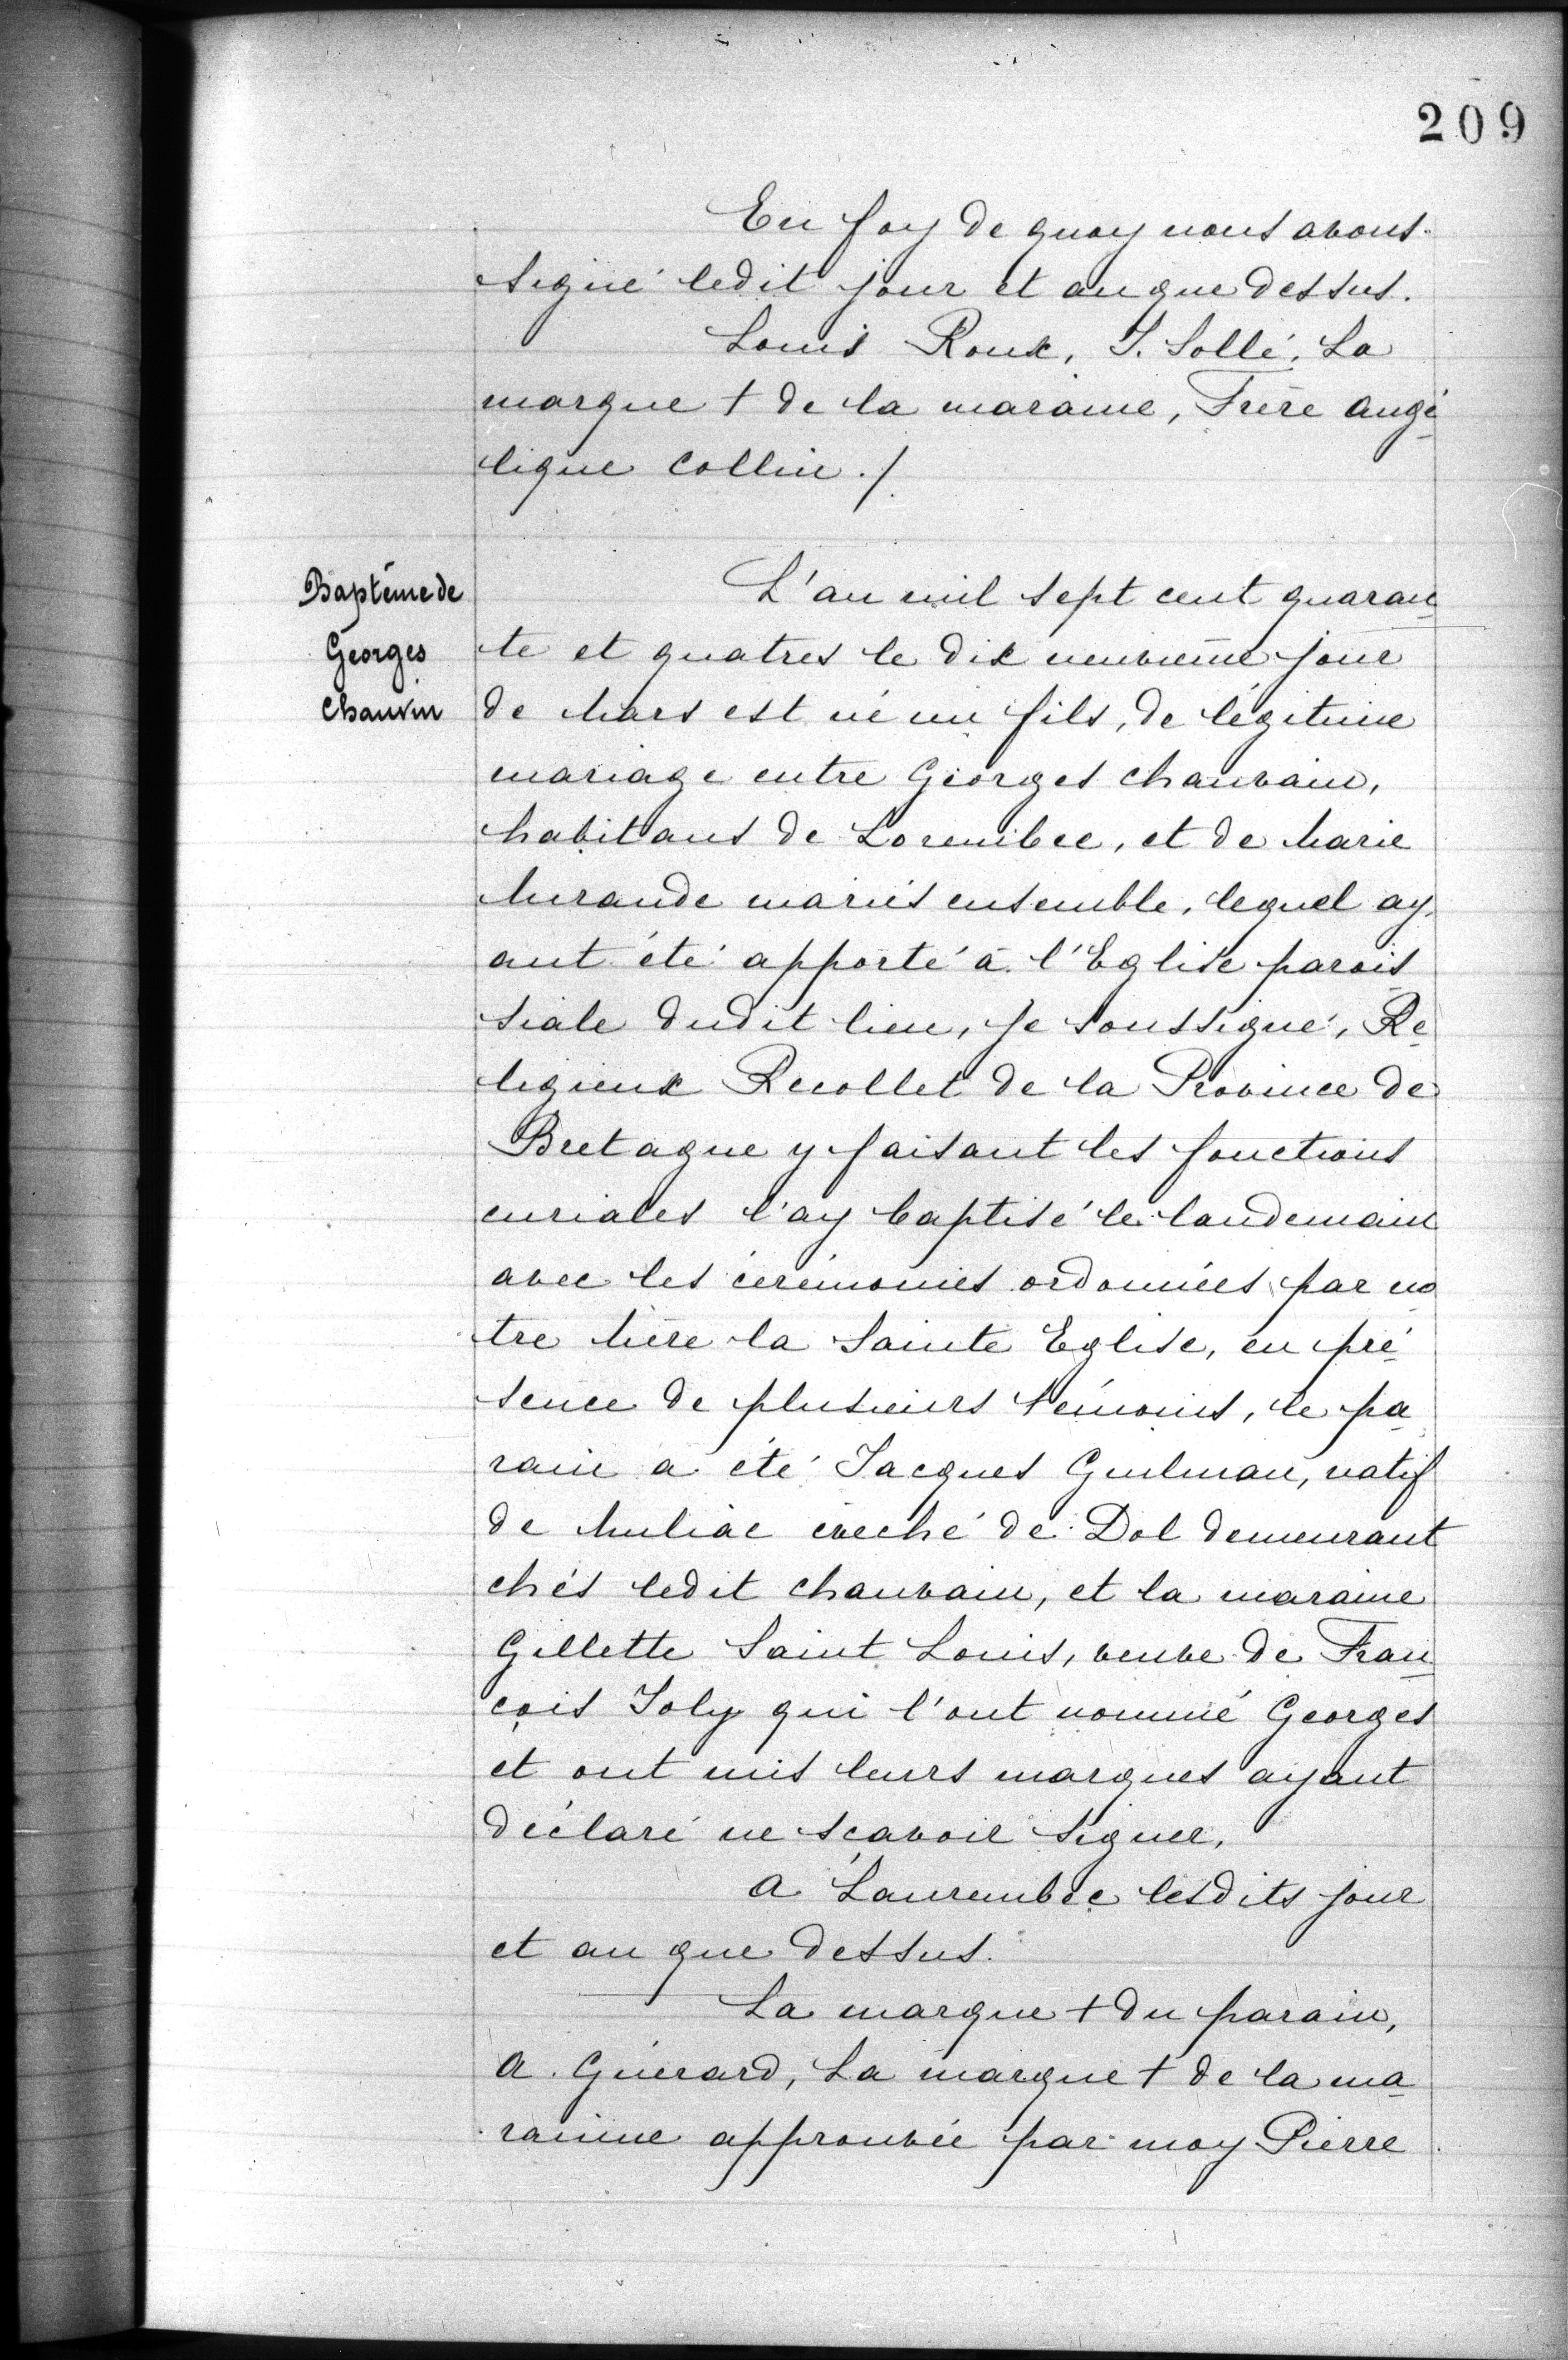 209
En foy de quoy nous avons
signé ledit jour et an que dessus.
Louis Roux, J. Sollé, La
marque + de la maraine, Frère Angé
lique Collin./.
Baptême de
Georges
Chauvin
L'an mil sept cent quaran
te et quatres le dix neuvième jour
de Mars est né un fils, de légitime
mariage entre Georges Chauvain,
habitans de Lorembec, et de Marie
Mirande mariés ensemble, lequel ay
ant été apporté à l'Eglise parois
siale dudit lieu, je soussigné, Re
ligieux Recollet de la Province de
Bretagne y faisant les fonctions
curiales l'ay baptisé le landemain
avec les cérémonies ordonnées par no
tre Mère la Sainte Eglise, en pré
sence de plusieurs témoins, le pa
rain a été Jacques Guilman, natif
de Miliac évêché de Dol demeurant
chés ledit Chauvain, et la maraine
Gillette Saint Louis, veuve de Fran
çois Joly qui l'ont nommé Georges
et ont mis leurs marques ayant
déclaré ne scavoir signer,
A Laurembec lesdits jour
et an que dessus.
La marque + du parain,
A. Guérard, La marque + de la ma
rainne approuvée par moy Pierre